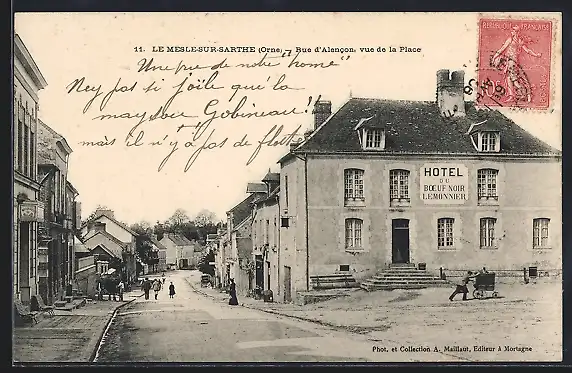 11. LE MESLE-SUR-SARTHE (Orne) - Rue d'Alençon, vue de la Place
Une vue de notre "home"
Ney pas si joile que'la
maysor Gobineau!!
mais il n'y a pas de flotte
REPUBLIQUE FRANÇAISE
HOTEL
DU
BŒUF NOIR
LEMONNIER
Phot. et Collection A. Maillaut, Editeur à Mortagne